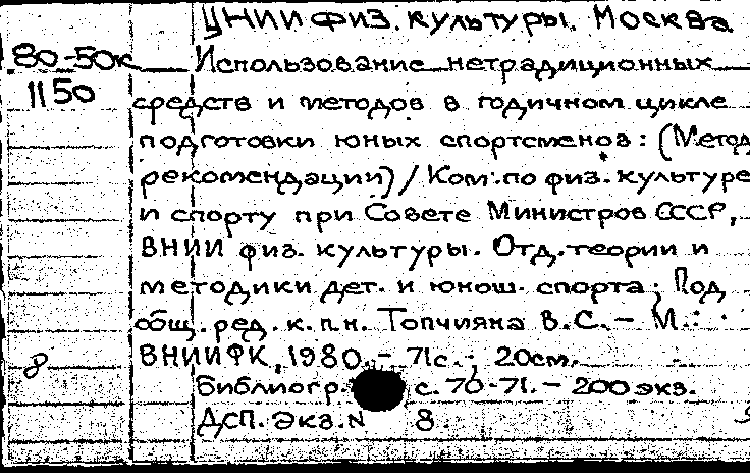 ЦНИИ физ. культуры. Москва
80-50к Использование нетрадиционных
1150 средств и методов в годичном цикле
подготовки юных спортсменов: (Метод
рекомендации) / Ком. по физ. культуре
и спорту при Совете Министров СССР,
ВНИИ физ. культуры. Отд. теории и
методики дет. и юнош. спорта; Под
общ. ред. к.п.н. Топчияна В.С. – М.:
8 ВНИИФК, 1980. – 71с.; 20см.
Библиогр. с. 70-71. – 200 экз.
ДСП. Экз. N 8